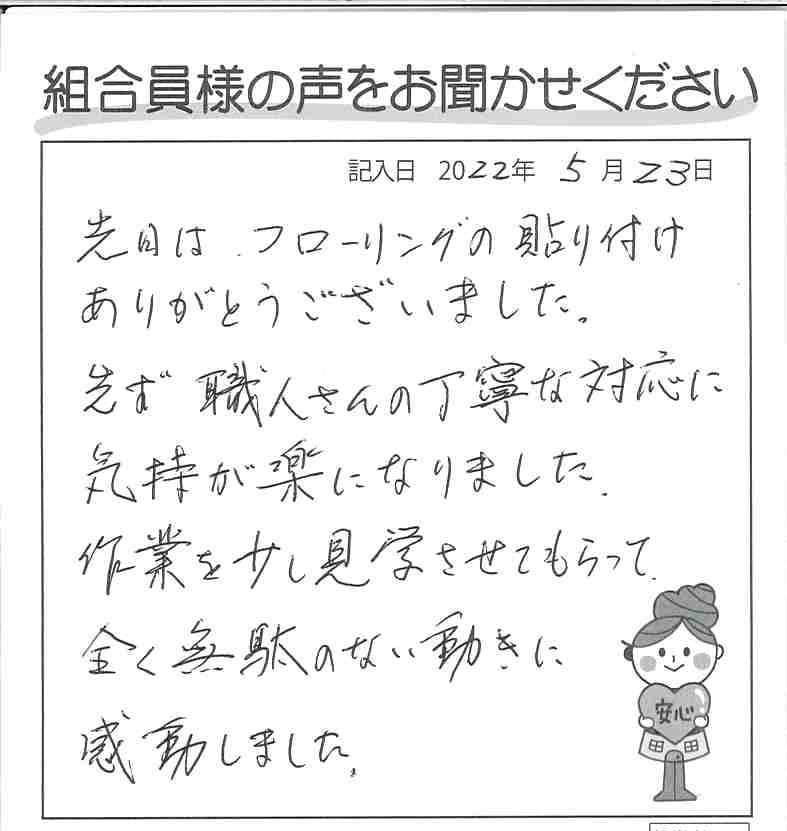 組合員様の声をお聞かせください
記入日 2022年 5月23日
先日は、フローリングの貼り付け
ありがとうございました。
先ず職人さんの丁寧な対応に
気持が楽になりました。
作業を少し見学させてもらって、
全く無駄のない動きに
感動しました。
安心